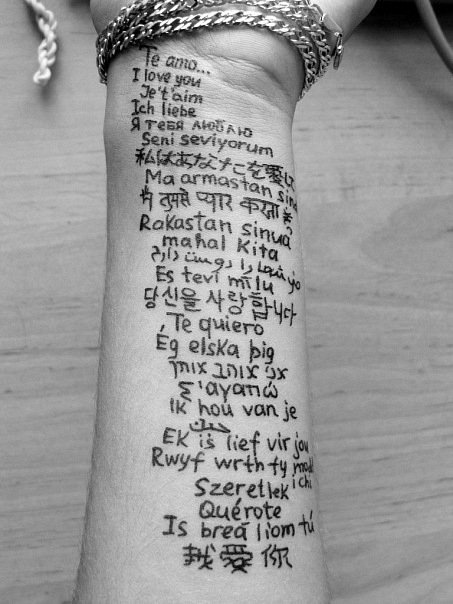 Te amo...
I love you
Je't'aim
Ich liebe
Я тебя люблю
Seni seviyorum
私はあなたを愛し
Ma armastan sind
मैं तुमसे प्यार करता हूँ
Rakastan sinua
mahal kita
شما را دوست دارم
Es tevi mīlu
당신을 사랑합니다
Te quiero
Ég elska þig
אני אוהב אותך
Σ'αγαπώ
Ik hou van je
Ek is lief vir jou
Rwyf wrth fy modd
i chi
Szeretlek
Quérote
Is breá liom tú
我愛你